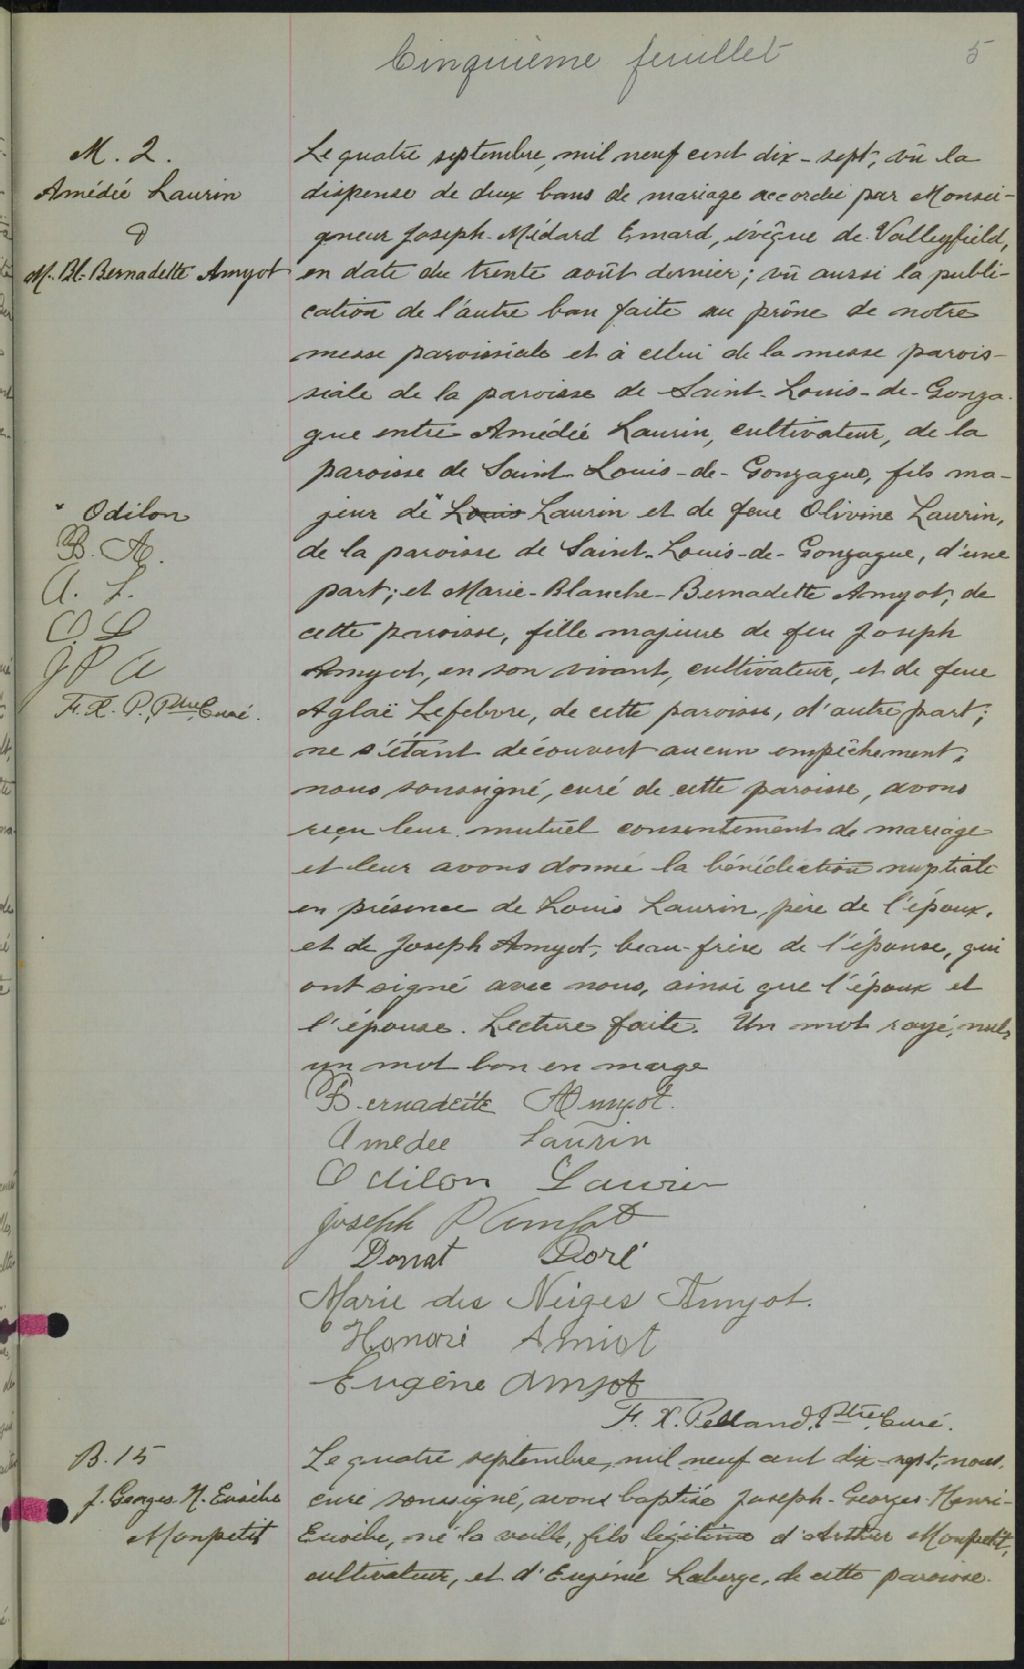 Cinquième feuillet
5
M. 2.
Amédée Laurin
&
M. Bl. Bernadette Amyot
Le quatre septembre, mil neuf cent dix-sept, vû la
dispense de deux bans de mariage accordée par Monsei-
gneur Joseph-Médard Emard, évêque de Valleyfield,
en date du trente août dernier; vû aussi la publi-
cation de l'autre ban faite au prône de notre
messe paroissiale et à celui de la messe parois-
siale de la paroisse de Saint-Louis-de-Gonza-
gue entre Amédée Laurin, cultivateur, de la
paroisse de Saint Louis-de-Gonzague, fils ma-
jeur de " Louis Laurin et de feue Olivine Laurin,
de la paroisse de Saint-Louis-de-Gonzague, d'une
part; et Marie-Blanche-Bernadette Amyot, de
cette paroisse, fille majeure de feu Joseph
Amyot, en son vivant, cultivateur, et de feue
Aglaë Lefebvre, de cette paroisse, d'autre part;
ne s'étant découvert aucun empêchement,
nous soussigné, curé de cette paroisse, avons
reçu leur mutuel consentement de mariage
et leur avons donné la bénédiction nuptiale
en présence de Louis Laurin, père de l'époux,
et de Joseph Amyot, beau-frère de l'épouse, qui
ont signé avec nous, ainsi que l'époux et
l'épouse. Lecture faite. Un mot rayé, nul,
un mot bon en marge
" Odilon
B. A.
A. L.
O L
J P A
F. X. P., Ptre Curé.
Bernadette Amyot.
Amedee Laurin
Odilon Laurin
Joseph P Amyot
Donat Doré
Marie des Neiges Amyot.
Honoré Amiot
Eugène Amyot
F. X. Pelland, Ptre Curé.
B. 15
J. Georges H. Eusèbe
Monpetit
Le quatre septembre, mil neuf cent dix-sept, nous,
curé soussigné, avons baptisé Joseph-Georges-Henri-
Eusèbe, né la veille, fils légitime d'Arthur Monpetit,
cultivateur, et d'Eugénie Laberge, de cette paroisse.